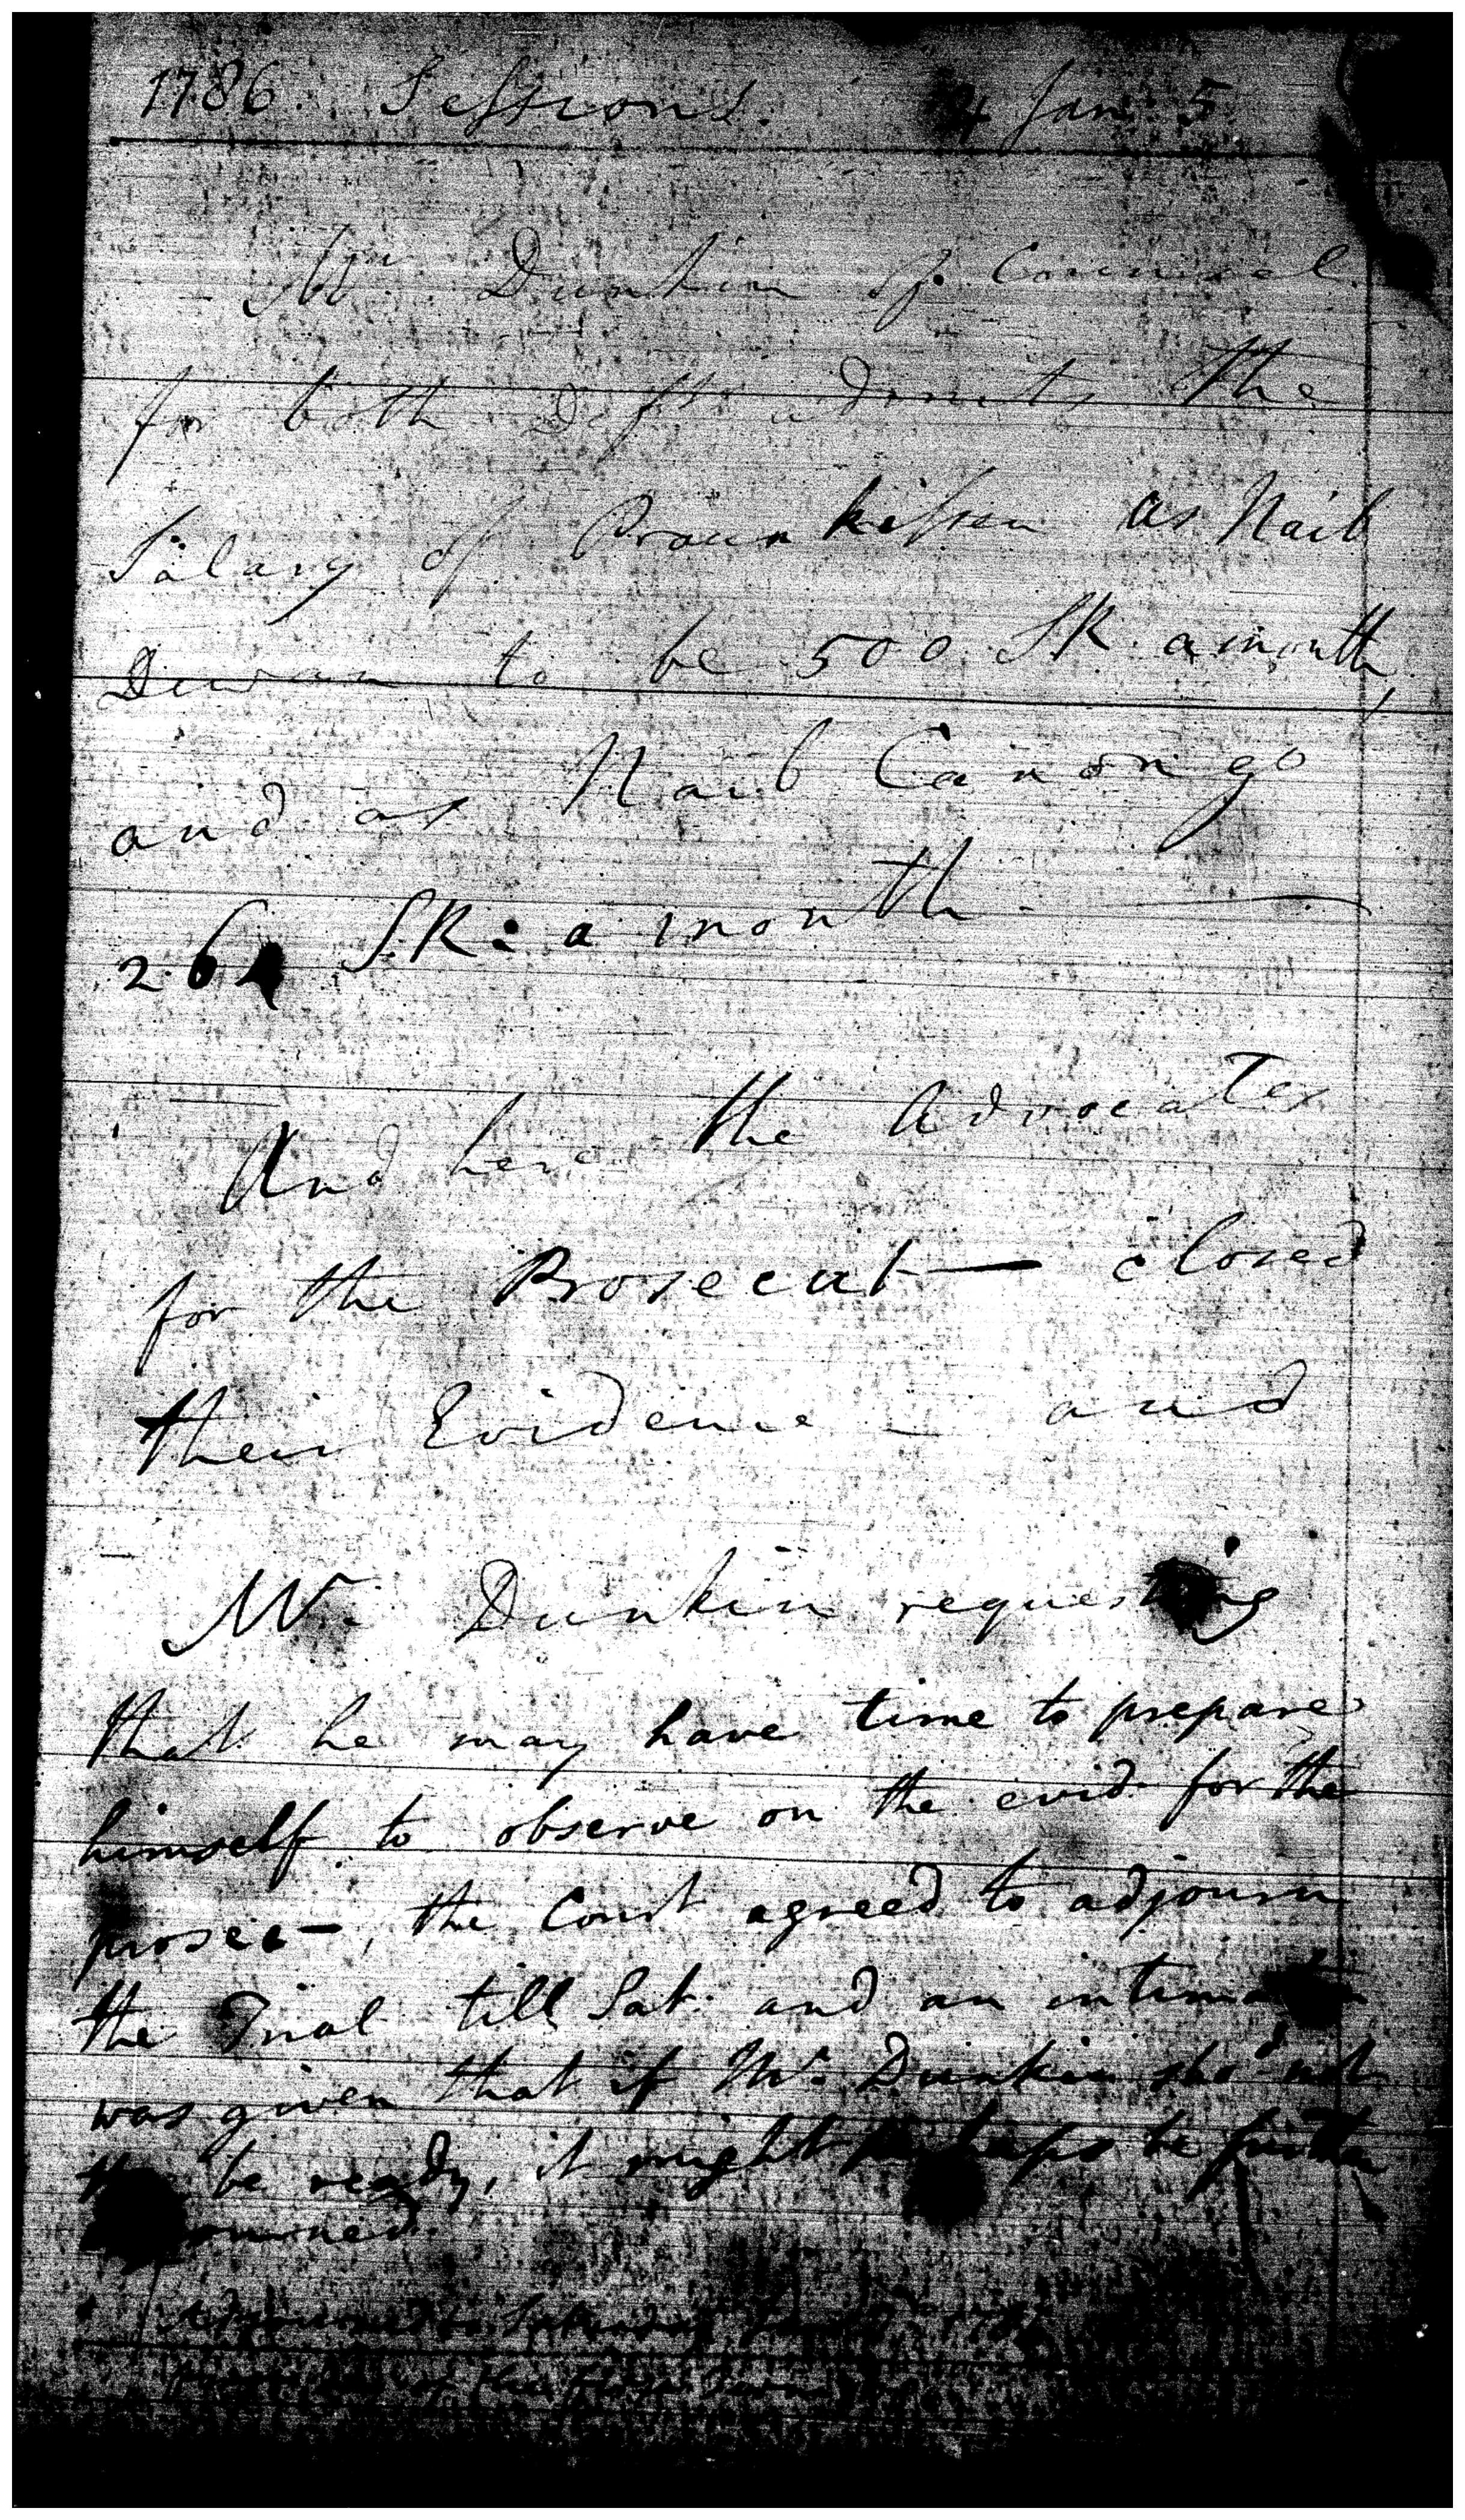 1786. Sessions. Jan. 5.
Mr. Dunkin of Counsel
for both Defts admits the
Salary of Prawnkissen as Naib
Dewan to be 500 SR a month,
and as Naib Canongo
SR: a month.
And here the Advocates
for the Prosecut— closed
their Evidence – and
Mr. Dunkin requesting
that he may have time to prepare
himself to observe on the evid. for the
prosec—, the Court agreed to adjourn
the Trial till Sat. and an
was given that if Mr. Dunkin shod not
be ready, it might perhaps be further
Adjourned to Saturday
of this